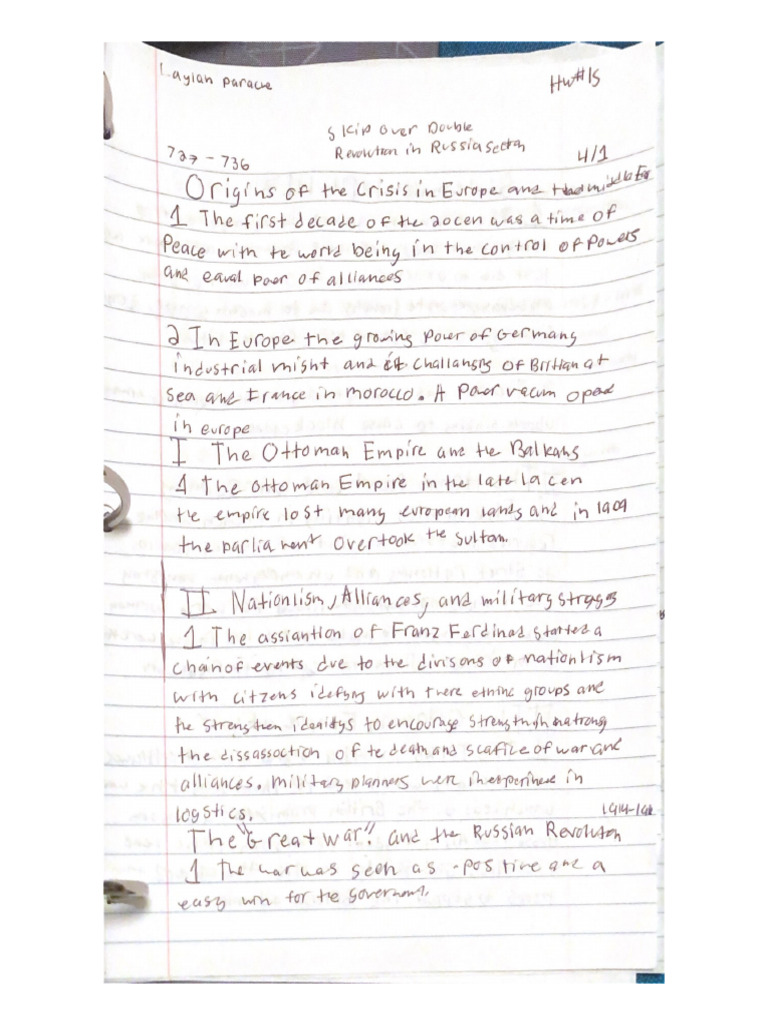 Layian Parache
Hw#15
Skip over Double
Revolution in Russia Secton
727 - 736
4/1
Origins of the Crisis in Europe and the middle Ea
1 The first decade of the 20cen was a time of
Peace with te world being in the control of Powers
and eaual poer of alliances
2 In Europe the growing power of Germany
industrial might and it challangrg of Brittian at
sea and France in morocco. A Power vacum oped
in europe
I The Ottoman Empire and the Balkans
1 The Ottoman Empire in the late 19 cen
the empire lost many european lands and in 1909
the parliament overtook the sultan.
II Nationlism, Alliances, and military strages
1 The assiantion of Franz Ferdinad started a
chain of events due to the divisons of nationlism
with citzens idefying with there ethinc groups and
the strengthen idenitys to encourage strength
the dissassoction of te death and scafice of war and
alliances. military planners were inexperined in
logstics.
1914-191
The "Great war!" and the Russian Revoluton
1 The war was seen as postive and a
easy win for the government.